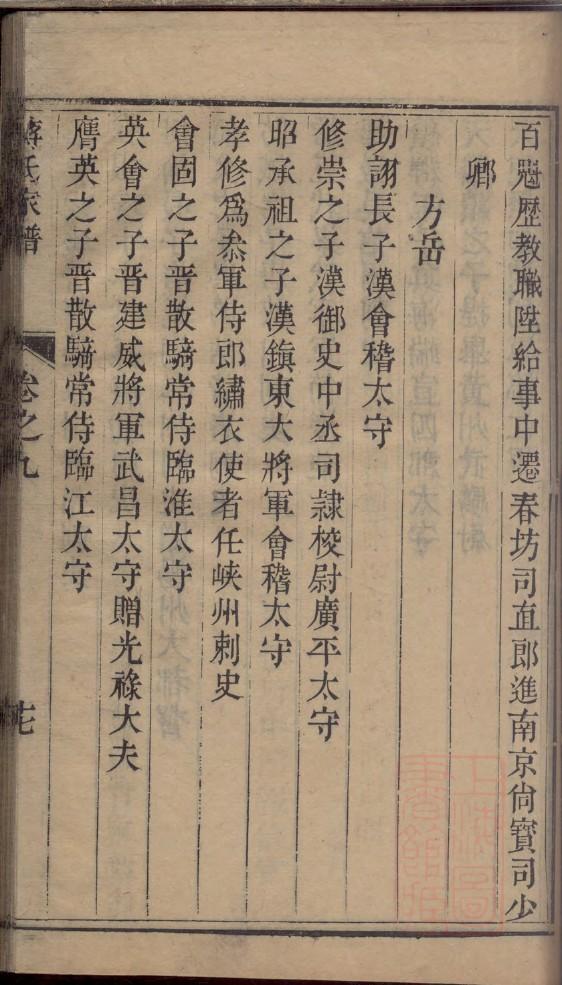 百魁歷教職陞給事中遷春坊司直郎進南京尙寶司少
卿
方岳
助詡長子漢會稽太守
修崇之子漢御史中丞司隷校尉廣平太守
昭承祖之子漢鎭東大將軍會稽太守
孝修爲叅軍侍郎繡衣使者任峽州刺史
會固之子晋散騎常侍臨淮太守
英會之子晋建威將軍武昌太守贈光祿大夫
膺英之子晋散騎常侍臨江太守
蔣氏家譜
卷之九